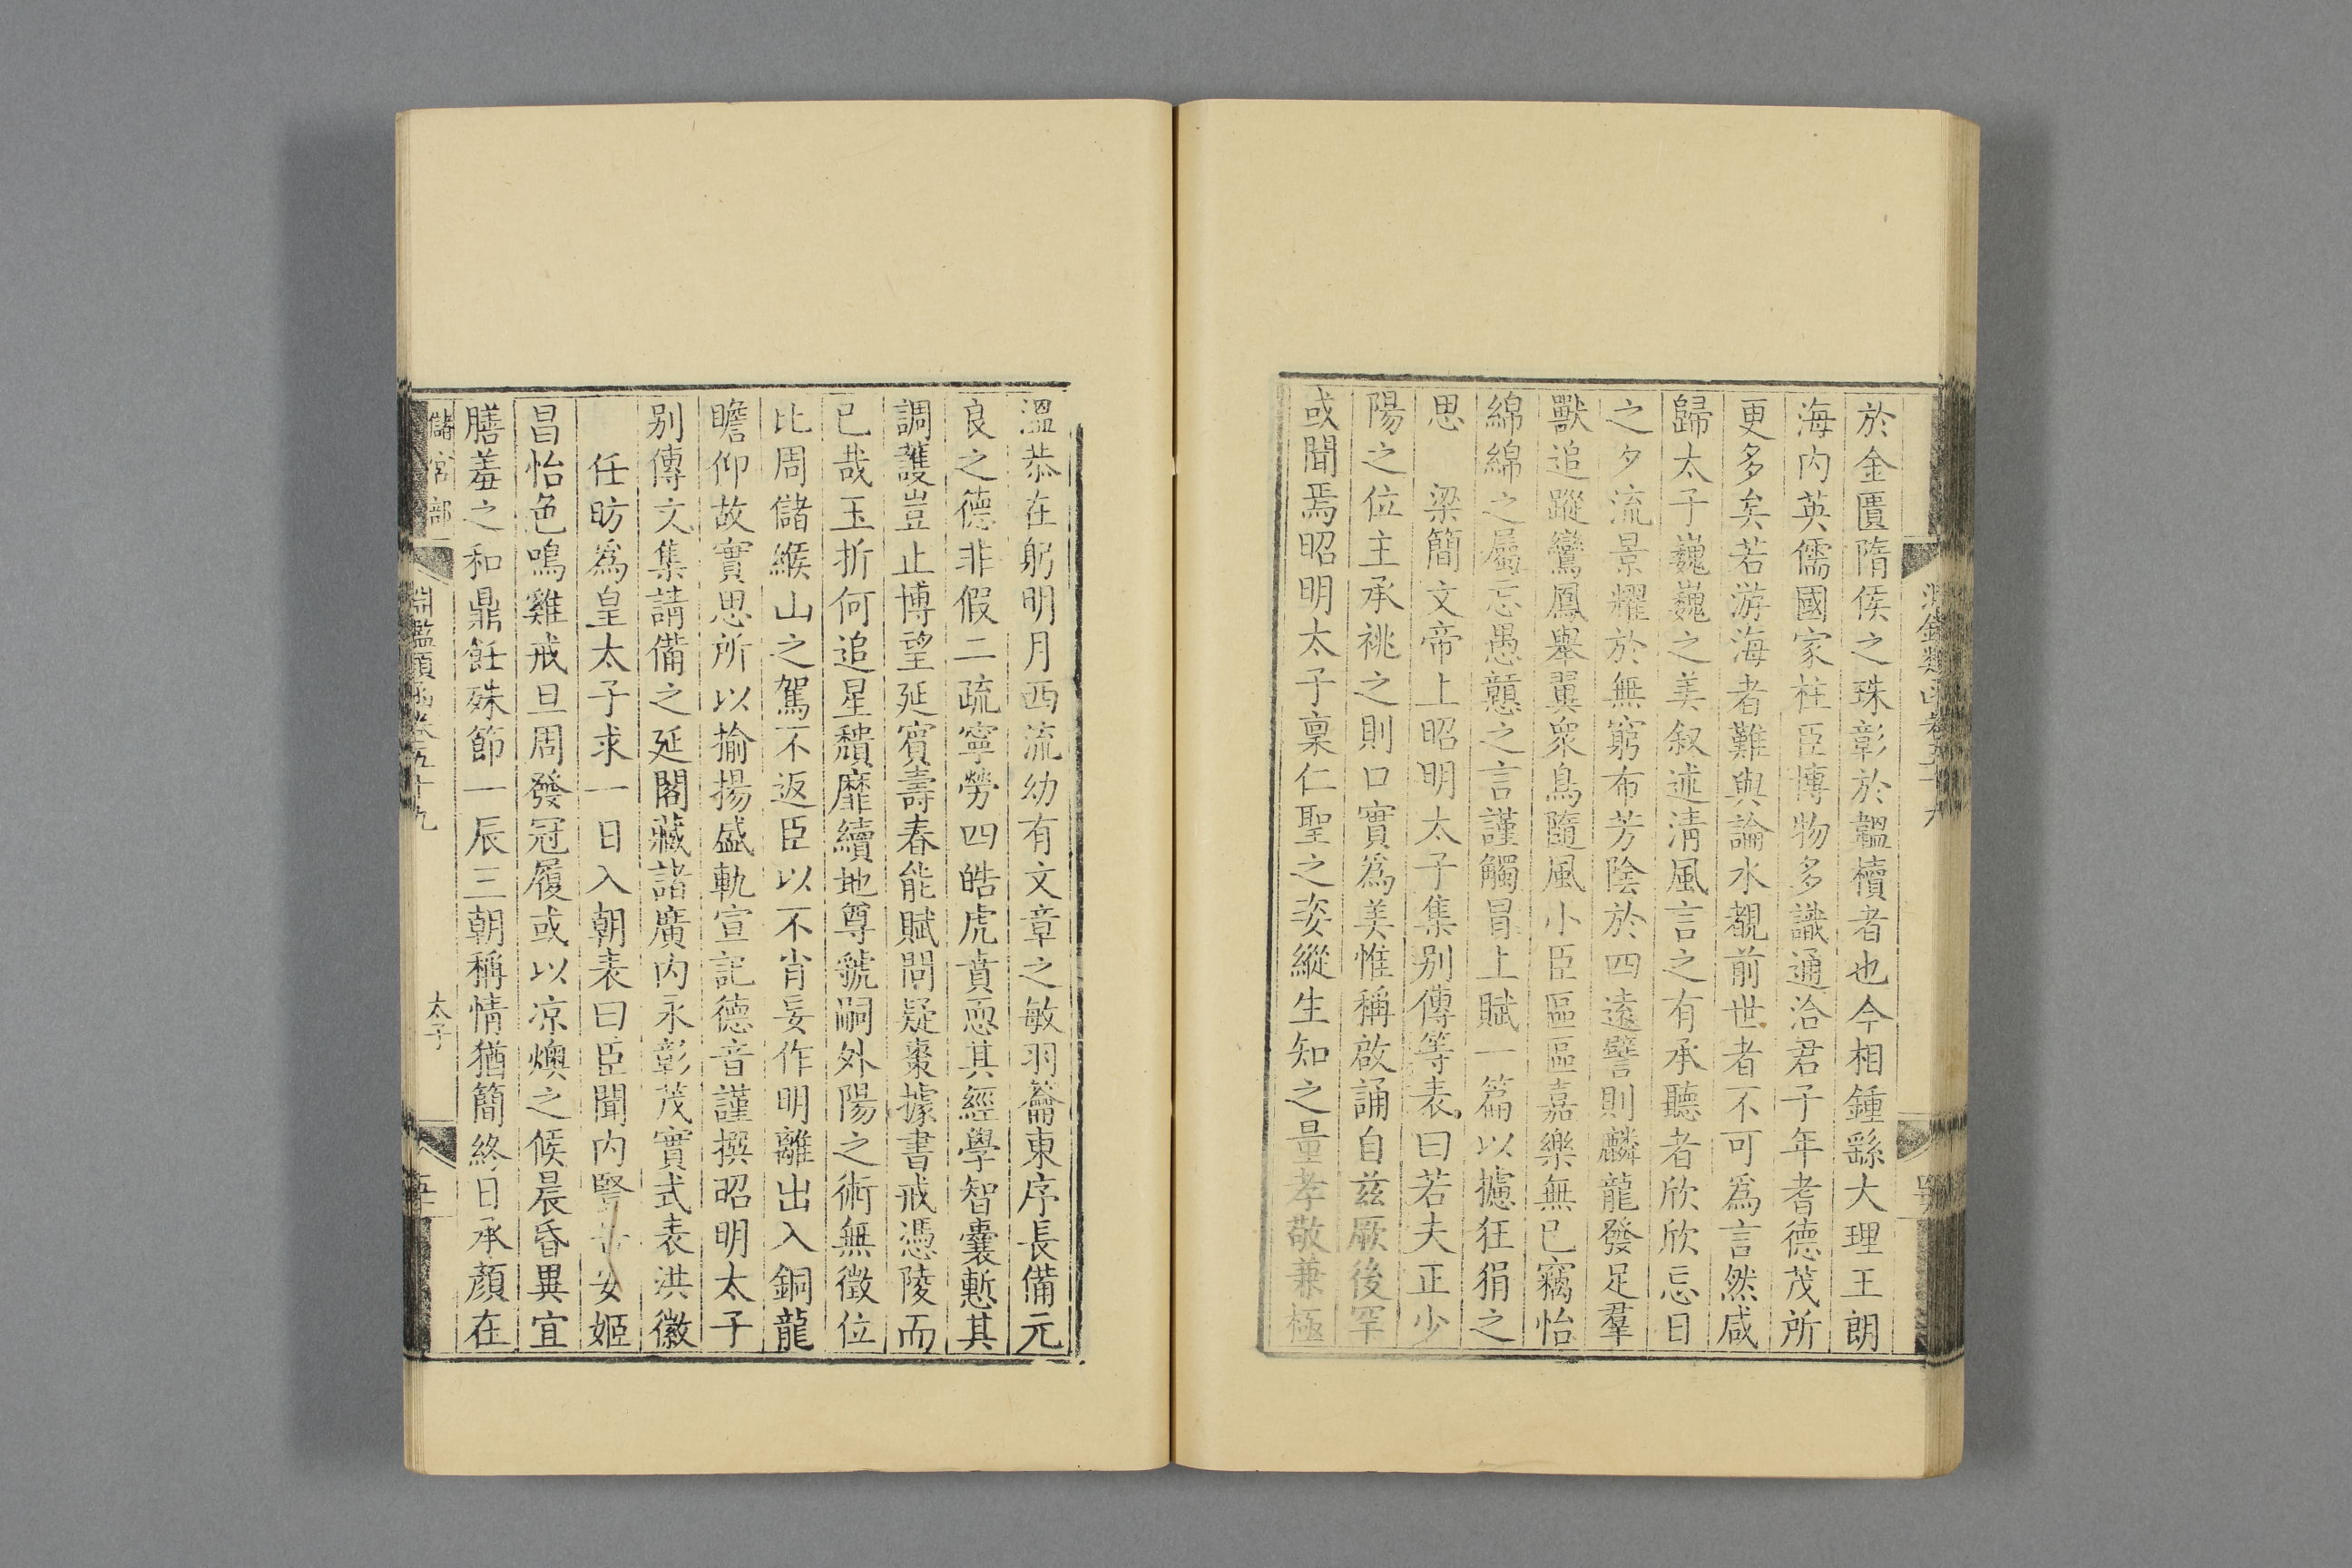 於金匱隋侯之珠彰於韞櫝者也今相鍾繇大理王朗
海内英儒國家柱臣博物多識通洽君子年耆德茂所
更多矣若游海者難與論水覩前世者不可爲言然咸
歸太子巍巍之美叙述清風言之有承聽者欣欣忘日
之夕流景耀於無窮布芳陰於四遠譬則麟龍發足羣
獸追蹤鸞鳳舉翼衆鳥隨風小臣區區嘉樂無已竊怡
綿綿之屬忘愚戇之言謹觸冒上賦一篇以攄狂狷之
思　梁簡文帝上昭明太子集别傳等表曰若夫正少
陽之位主承祧之則口實爲美惟稱啟誦自兹厥後罕
或聞焉昭明太子稟仁聖之姿縱生知之量孝敬兼極
溫恭在躬明月西流幼有文章之敏羽籥東序長備元
良之德非假二疏寧勞四皓虎賁恧其經學智囊慙其
調護豈止博望延賓壽春能賦問疑棗據書戒憑陵而
已哉玉折何追星頽靡續地尊號嗣外陽之術無徵位
比周儲緱山之駕不返臣以不肖妄作明離出入銅龍
瞻仰故實思所以揄揚盛軌宣記德音謹撰昭明太子
别傳文集請備之延閣藏諸廣内永彰茂實式表洪徽
任昉爲皇太子求一日入朝表曰臣聞内豎安姬
昌怡色鳴雞戒旦周發冠履或以凉燠之候晨昏異宜
膳羞之和鼎飪殊節一辰三朝稱情猶簡終日承顏在
儲宮部 淵鑑類函卷五十九 太子